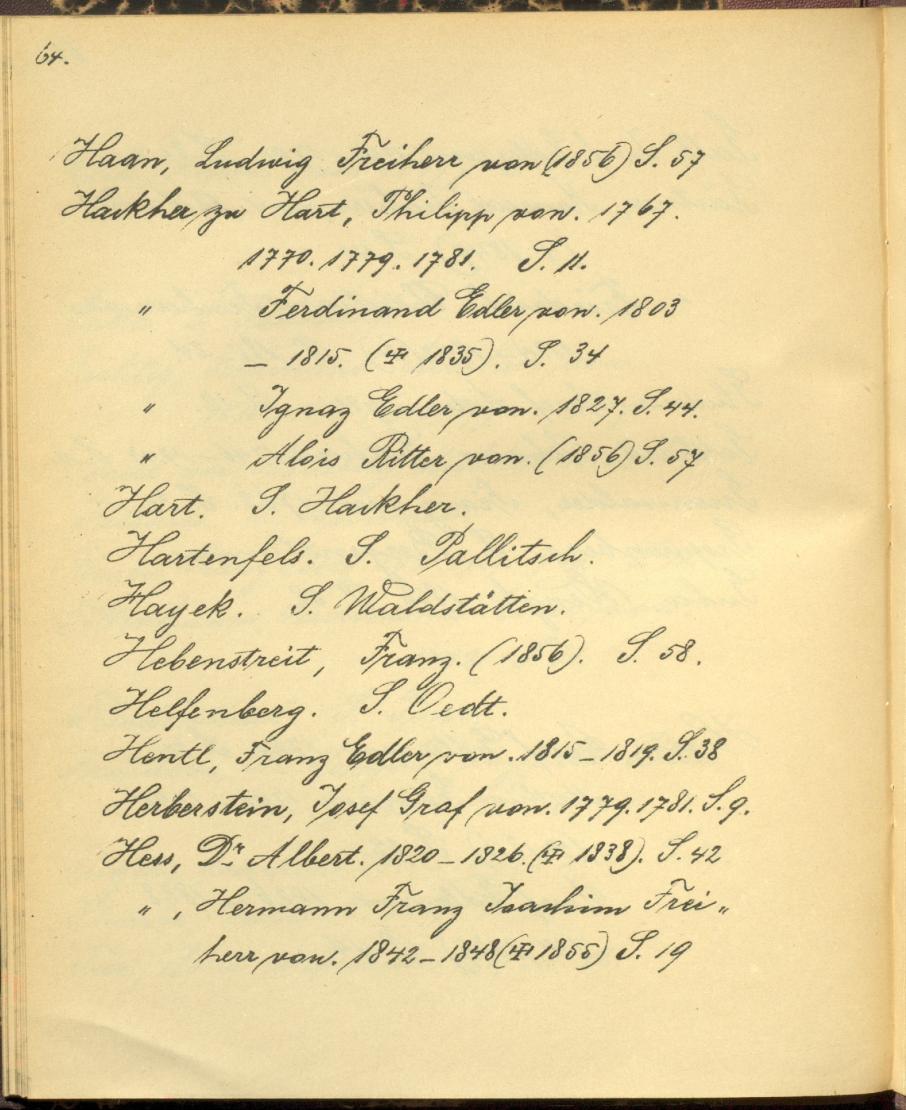 64.
Haan, Ludwig Freiherr von (1856) S. 57
Hackher zu Hart, Philipp von. 1767.
1770. 1779. 1781. S. 11.
" Ferdinand Edler von. 1803
– 1815. (✠ 1835). S. 34
" Ignaz Edler von. 1827. S. 44.
" Alois Ritter von. (1856) S. 57
Hart. S. Hackher.
Hartenfels. S. Pallitsch.
Hayek. S. Waldstätten.
Hebenstreit, Franz. (1856). S. 58.
Helfenberg. S. Oedt.
Hentl, Franz Edler von. 1815–1819. S. 38
Herberstein, Josef Graf von. 1779. 1781. S. 9.
Hess, Dr Albert. 1820–1826. (✠ 1838). S. 42
" , Hermann Franz Joachim Frei„
herr von. 1842–1848 (✠ 1855) S. 19